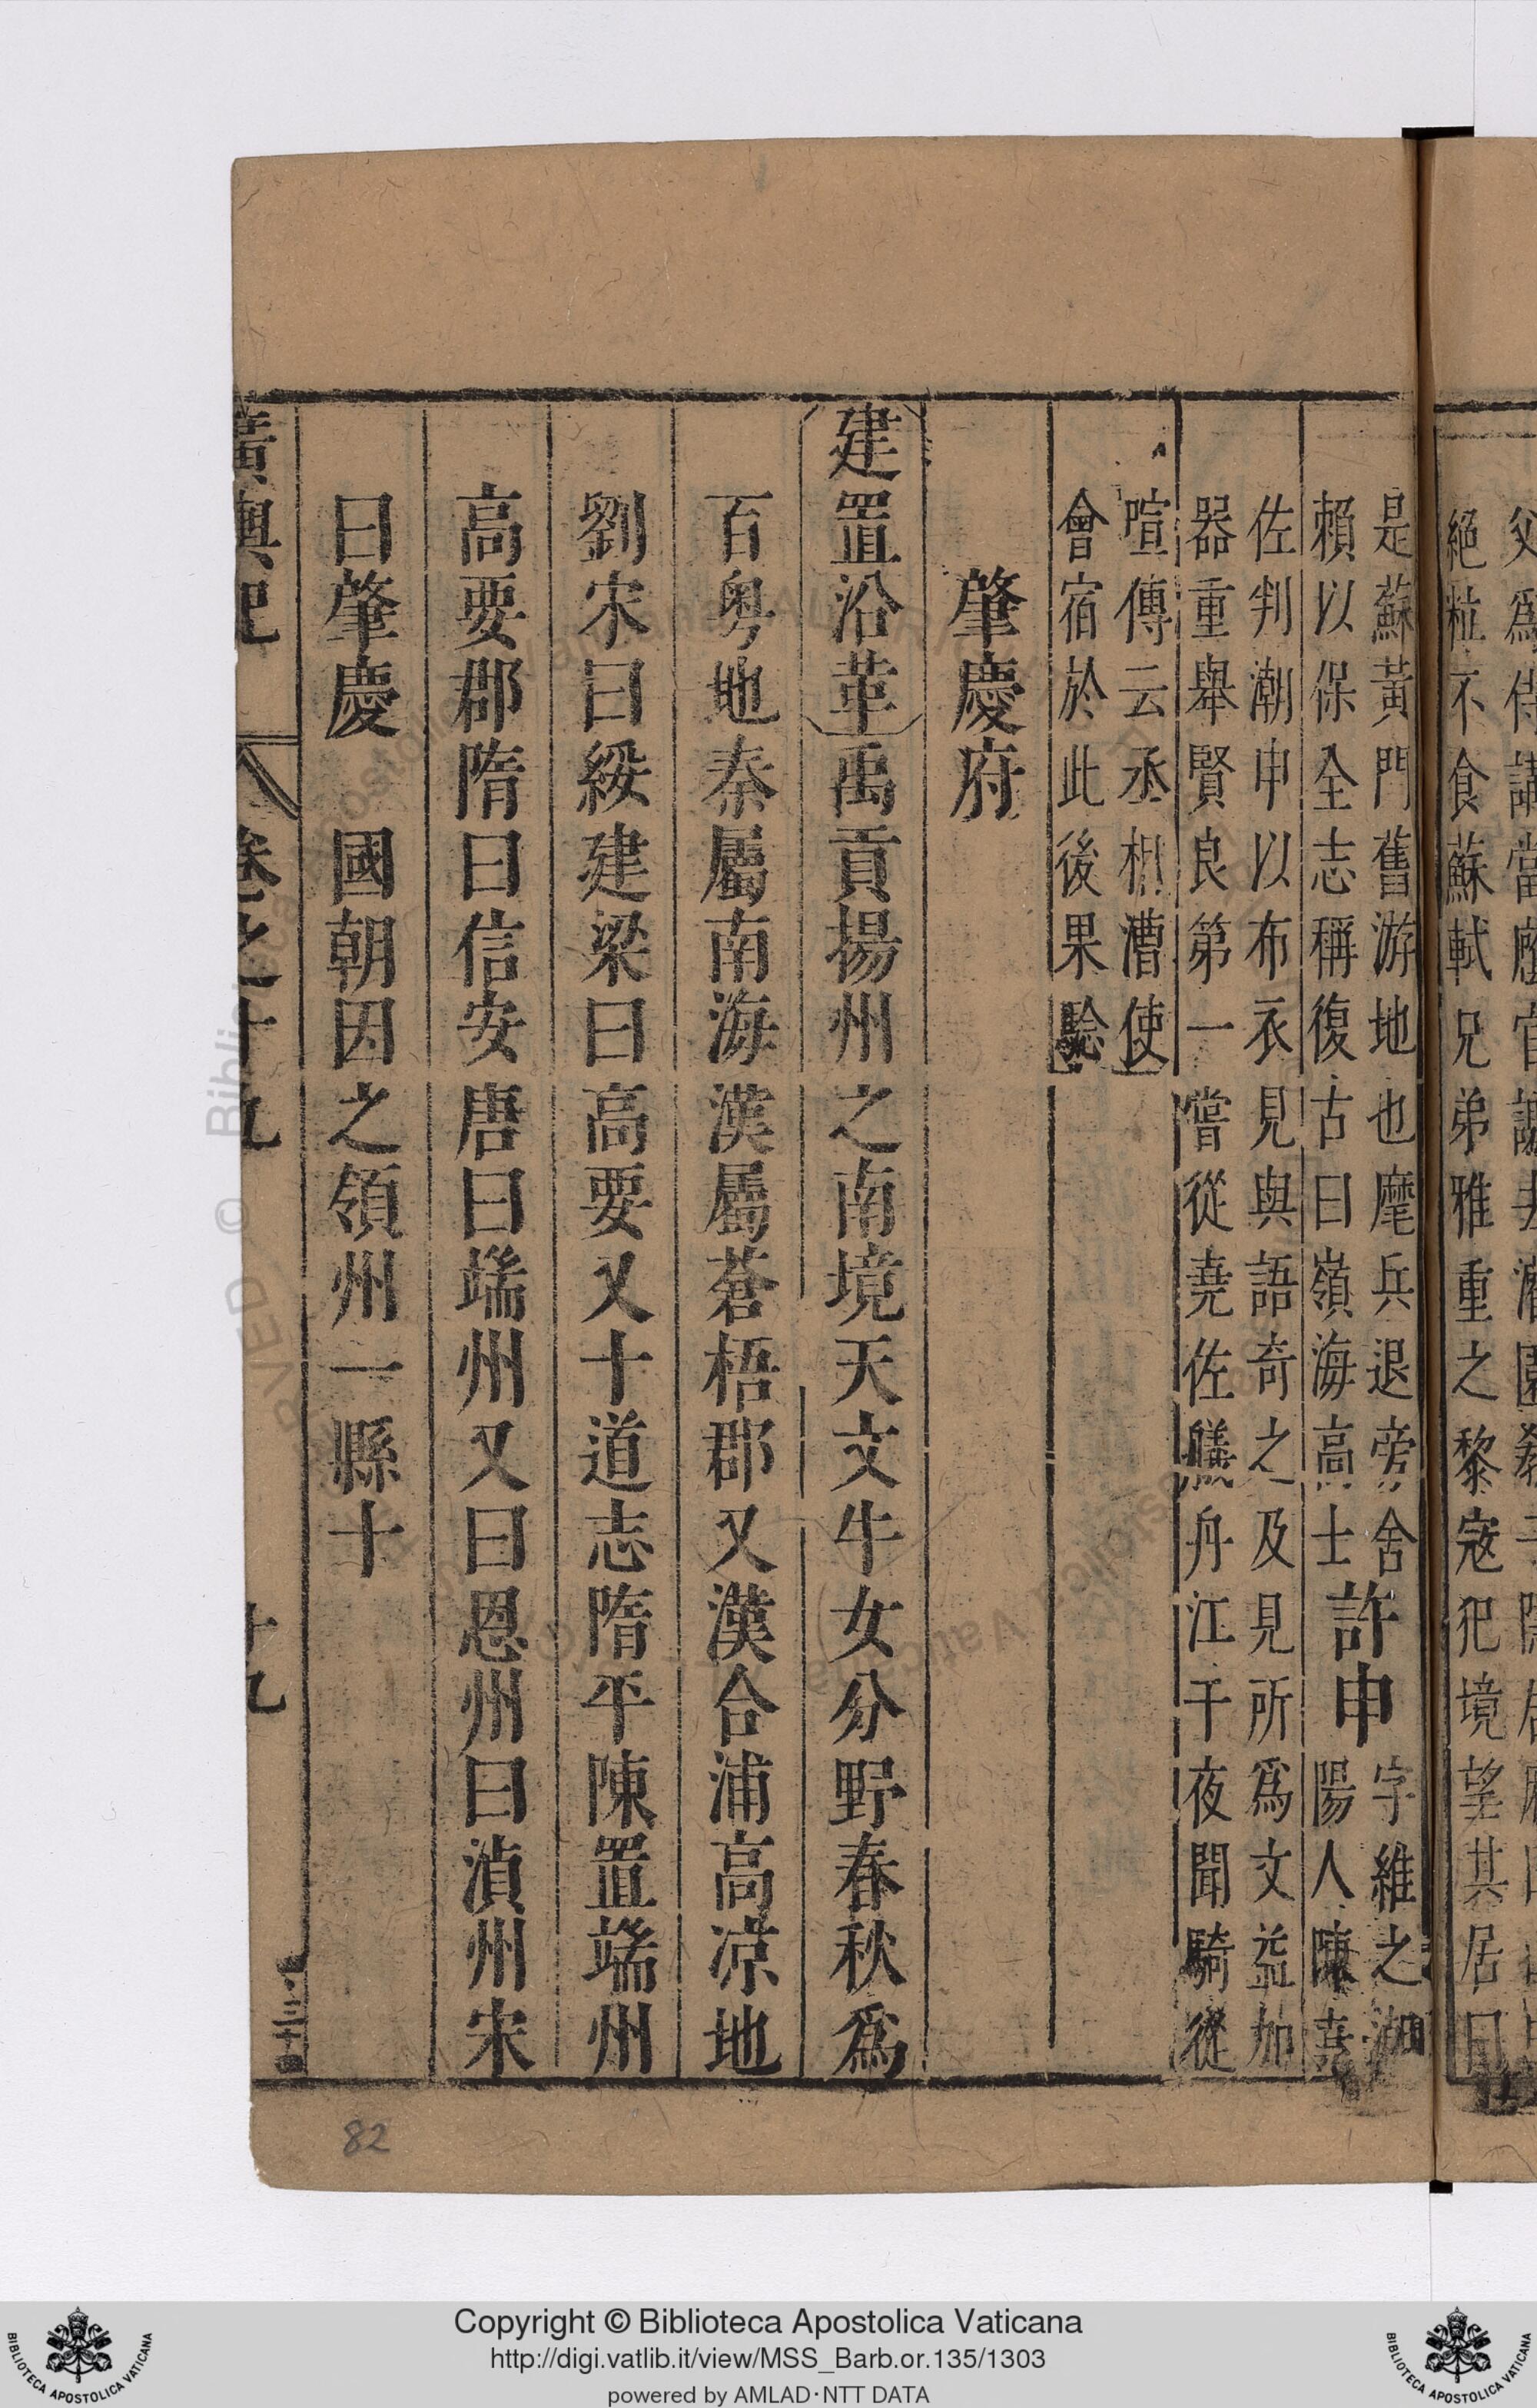 絕粒不食蘇軾兄弟雅重之黎寇犯境望其居曰
是蘇黃門舊游地也麾兵退旁舍
賴以保全志稱復古曰嶺海高士
許申
字維之潮
陽人陳堯
佐判潮申以布衣見與語奇之及見所爲文益加
器重舉賢良第一嘗從堯佐艤舟江干夜聞騎從
喧傳云丞相漕使
會宿於此後果驗
肇慶府
建置沿革禹貢揚州之南境天文牛女分野春秋爲
百粵地秦屬南海漢屬蒼梧郡又漢合浦高凉地
劉宋曰綏建梁曰高要又十道志隋平陳置端州
高要郡隋曰信安唐曰端州又曰恩州曰湞州宋
曰肇慶 國朝因之領州一縣十
廣輿記 卷之十九 十九
三十四
82
Copyright © Biblioteca Apostolica Vaticana
http://digi.vatlib.it/view/MSS_Barb.or.135/1303
powered by AMLAD·NTT DATA
BIBLIOTECA APOSTOLICA VATICANA
BIBLIOTECA APOSTOLICA VATICANA